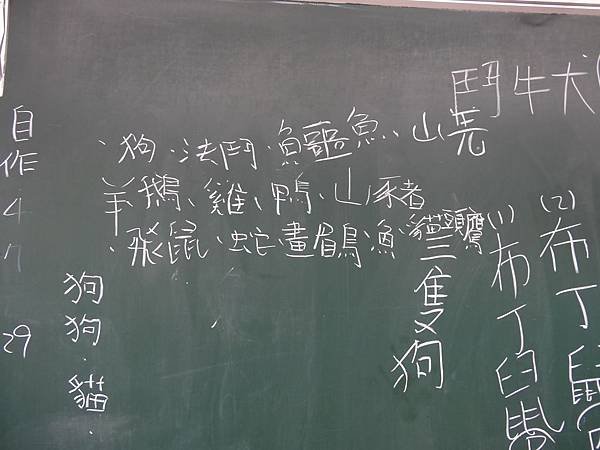 鬥牛犬(
、狗、法鬥、鱷魚、山羌
羊鵝、雞、鴨、山豬
、飛鼠、蛇畫眉鳥、漁、貓頭鷹
(2)布丁鼠
(1)布丁
三隻狗
狗狗、貓、
自作47
29